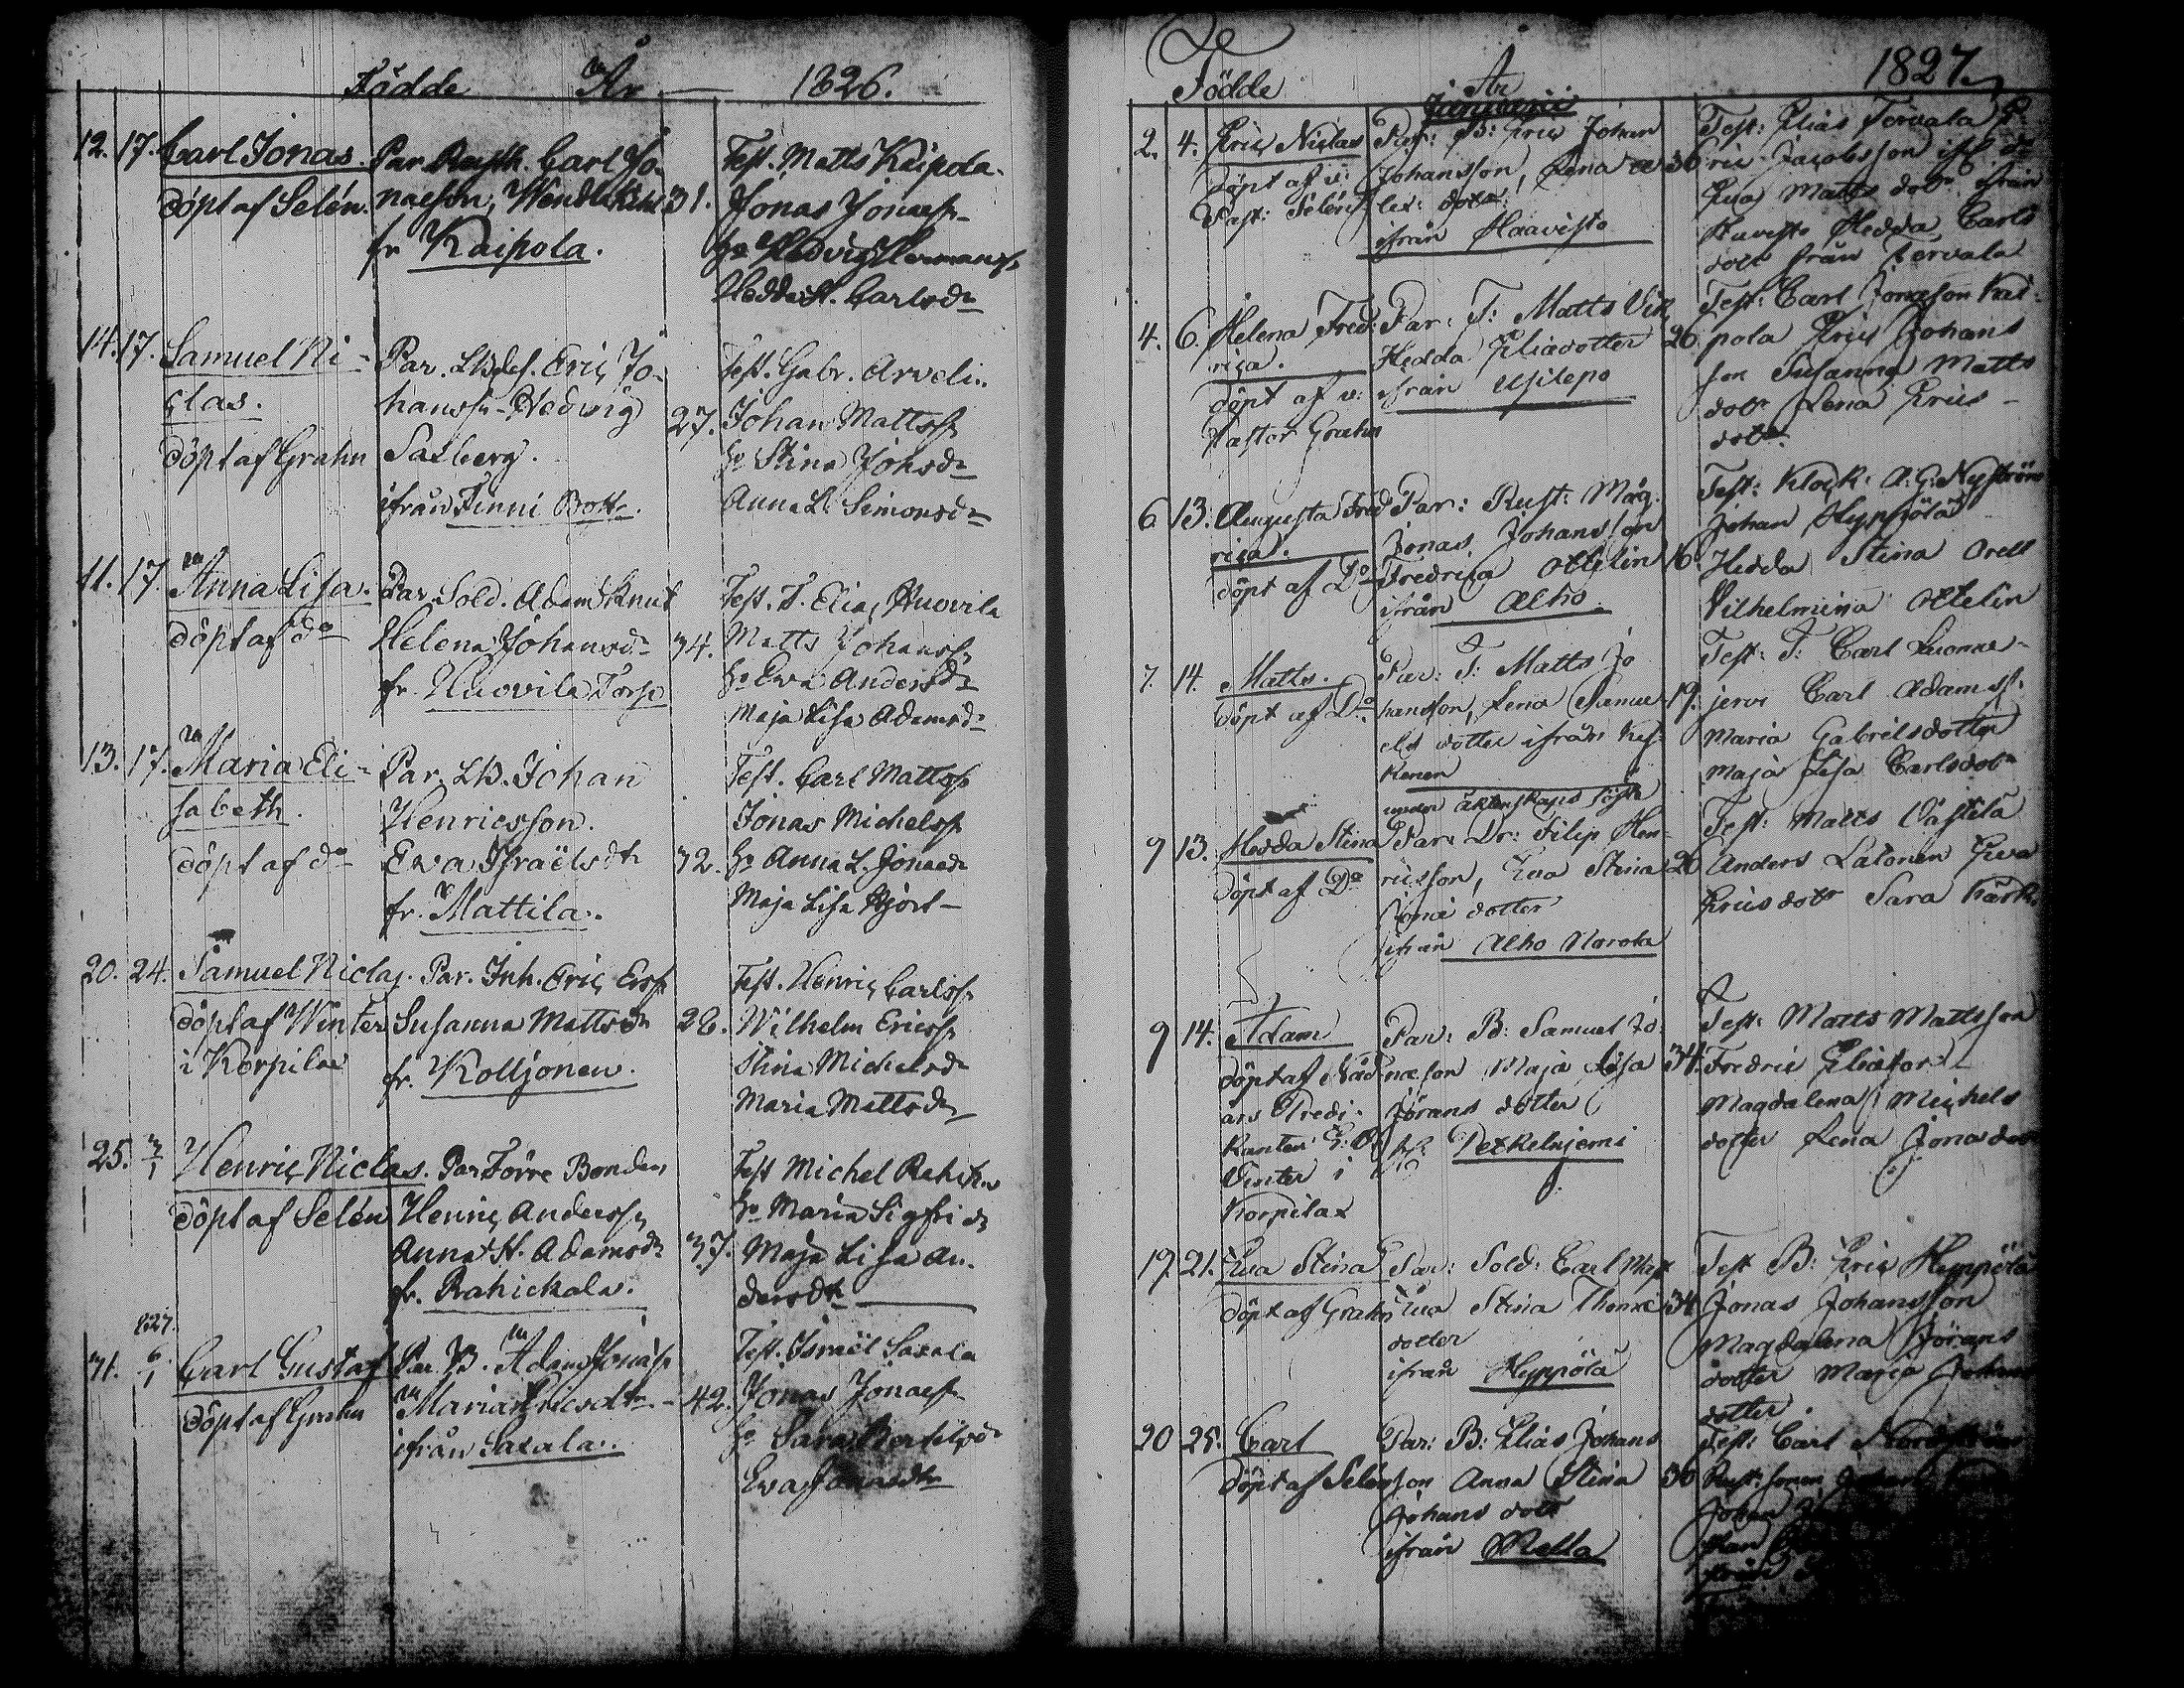 Födde År 1826.
12. 17. Carl Jonas.
döpt af Selén.
Par. Rusth. Carl Jo-
naesson, Wendla
fr Kaipola.
31.
Test. Matts Kaipola.
Jonas Jonaess.
ho Hedvig Hermansd.
Hedda St. Carlsdr
14. 17. Samuel Ni-
clas.
döpt af Grahn
Par. Eric Jo-
hanss. Hedvig
Saxberg.
ifrån Finni
27.
Test. Gabr. Arveli.
Johan Mattss.
ho Stina Johsdr
Anna L. Simonsdr
11. 17. Anna Lisa.
döpt af do
Par. Sold. Adam Knut
Helena Johansdr
fr. Huovila Torp
34.
Test. T. Elias Huovila
Matts Johanss.
ho Ewa Andersdr
Maja Lisa Adamsdr
13. 17. Maria Eli-
sabeth.
döpt af do
Par. Johan
Henricsson.
Ewa Israëlsdtr
fr. Mattila.
32.
Test. Carl Mattss
Jonas Michelss.
ho Anna L. Jonaedr
Maja Lisa Hjort
20. 24. Samuel Niclas.
döpt af Winter
i Korpilax
Par. Inh. Eric Erss.
Susanna Mattsdr
fr. Kolljonen.
28.
Test. Henric Carlss.
Wilhelm Ericss.
Stina Michelsdr
Maria Mattsdr
25. Henric Niclas.
döpt af Selén
Par. Förre Bonden
Henric Anderss.
Anna St. Adamsdr
fr. Rahickala.
37.
Test Michel
ho Maria Sigfridr
Maja Lisa An-
dersdtr
1827.
31. 6/1 Carl Gustaf
döpt af Grahn
Par. B. Adam Jonass
Maria Ericsdtr
ifrån Saxala.
42.
Test. Israël Saxala
Jonas Jonaess.
ho Sara Bertilsdr
Ewa Jonaedtr
Födde År 1827.
Januarii
2. 4. Eric Niclas
döpt af v:
Past: Selén
Par: B: Eric Johan
Johansson, Lena
dotr
ifrån Haavisto
36
Test: Elias Torvala
ric Jacobsson
Eva Matts dotr ifrån
Haavisto Hedda Carls
dotr från Torvala
4. 6. Helena Fred:
rica.
döpt af v:
Pastor Grahn
Par: T: Matts
Hedda Eliædotter
ifrån
26
Test: Carl Jonæson Kai-
pola Eric Johans
son Susanna Matts
dotr Lena Erics
dotr.
6 13. Augusta Fred
rica.
döpt af Do
Par: Rust: Måg.
Jonas Johansson
Fredrica Ottelin
ifrån Alho
16.
Test: Klock: A: G: Nyström
Johan Heppölä
Hedda Stina Orell
Vilhelmina Ottelin
7. 14. Matts.
döpt af Do
Par: T: Matts Jo
hansson, Lena Samu
els dotter ifrån
19.
Test: T: Carl Luome-
jervi Carl Adamss.
Maria Gabrielsdotter
Maja Lisa Carlsdotr
9 13. Hedda Stina
döpt af Do
under äktenskaps löfte
Par: Dr: Filip Hen-
ricsson, Eva Stina
Jonæ dotter
ifrån Alho
26
Test: Matts Västilä
Anders Latonen Eva
Ericsdotr Sara
9 14. Adam
döpt af Nåd
års Predi-
kanten
Vinter i
Korpilax
Par: B: Samuel Jo-
næson Maja Lisa
Jörans dotter
Petkelnjemi
34.
Test: Matts Mattsson
Fredric Eliæson
Magdalena Michels
dotter Lena Jonæ dotr
19. 21. Eva Stina
döpt af Grahn
Par: Sold: Carl
Eva Stina
dotter
ifrån Heppölä
34
Test B: Eric Heppölä
Jonas Johansson
Magdalena Jörans
dotter Maria Johans
dotter.
20 25. Carl
döpt af Selén
Par: B: Elias Johans
son Anna Stina
Johans dotr
ifrån Mella
36
Test: Carl
Johan